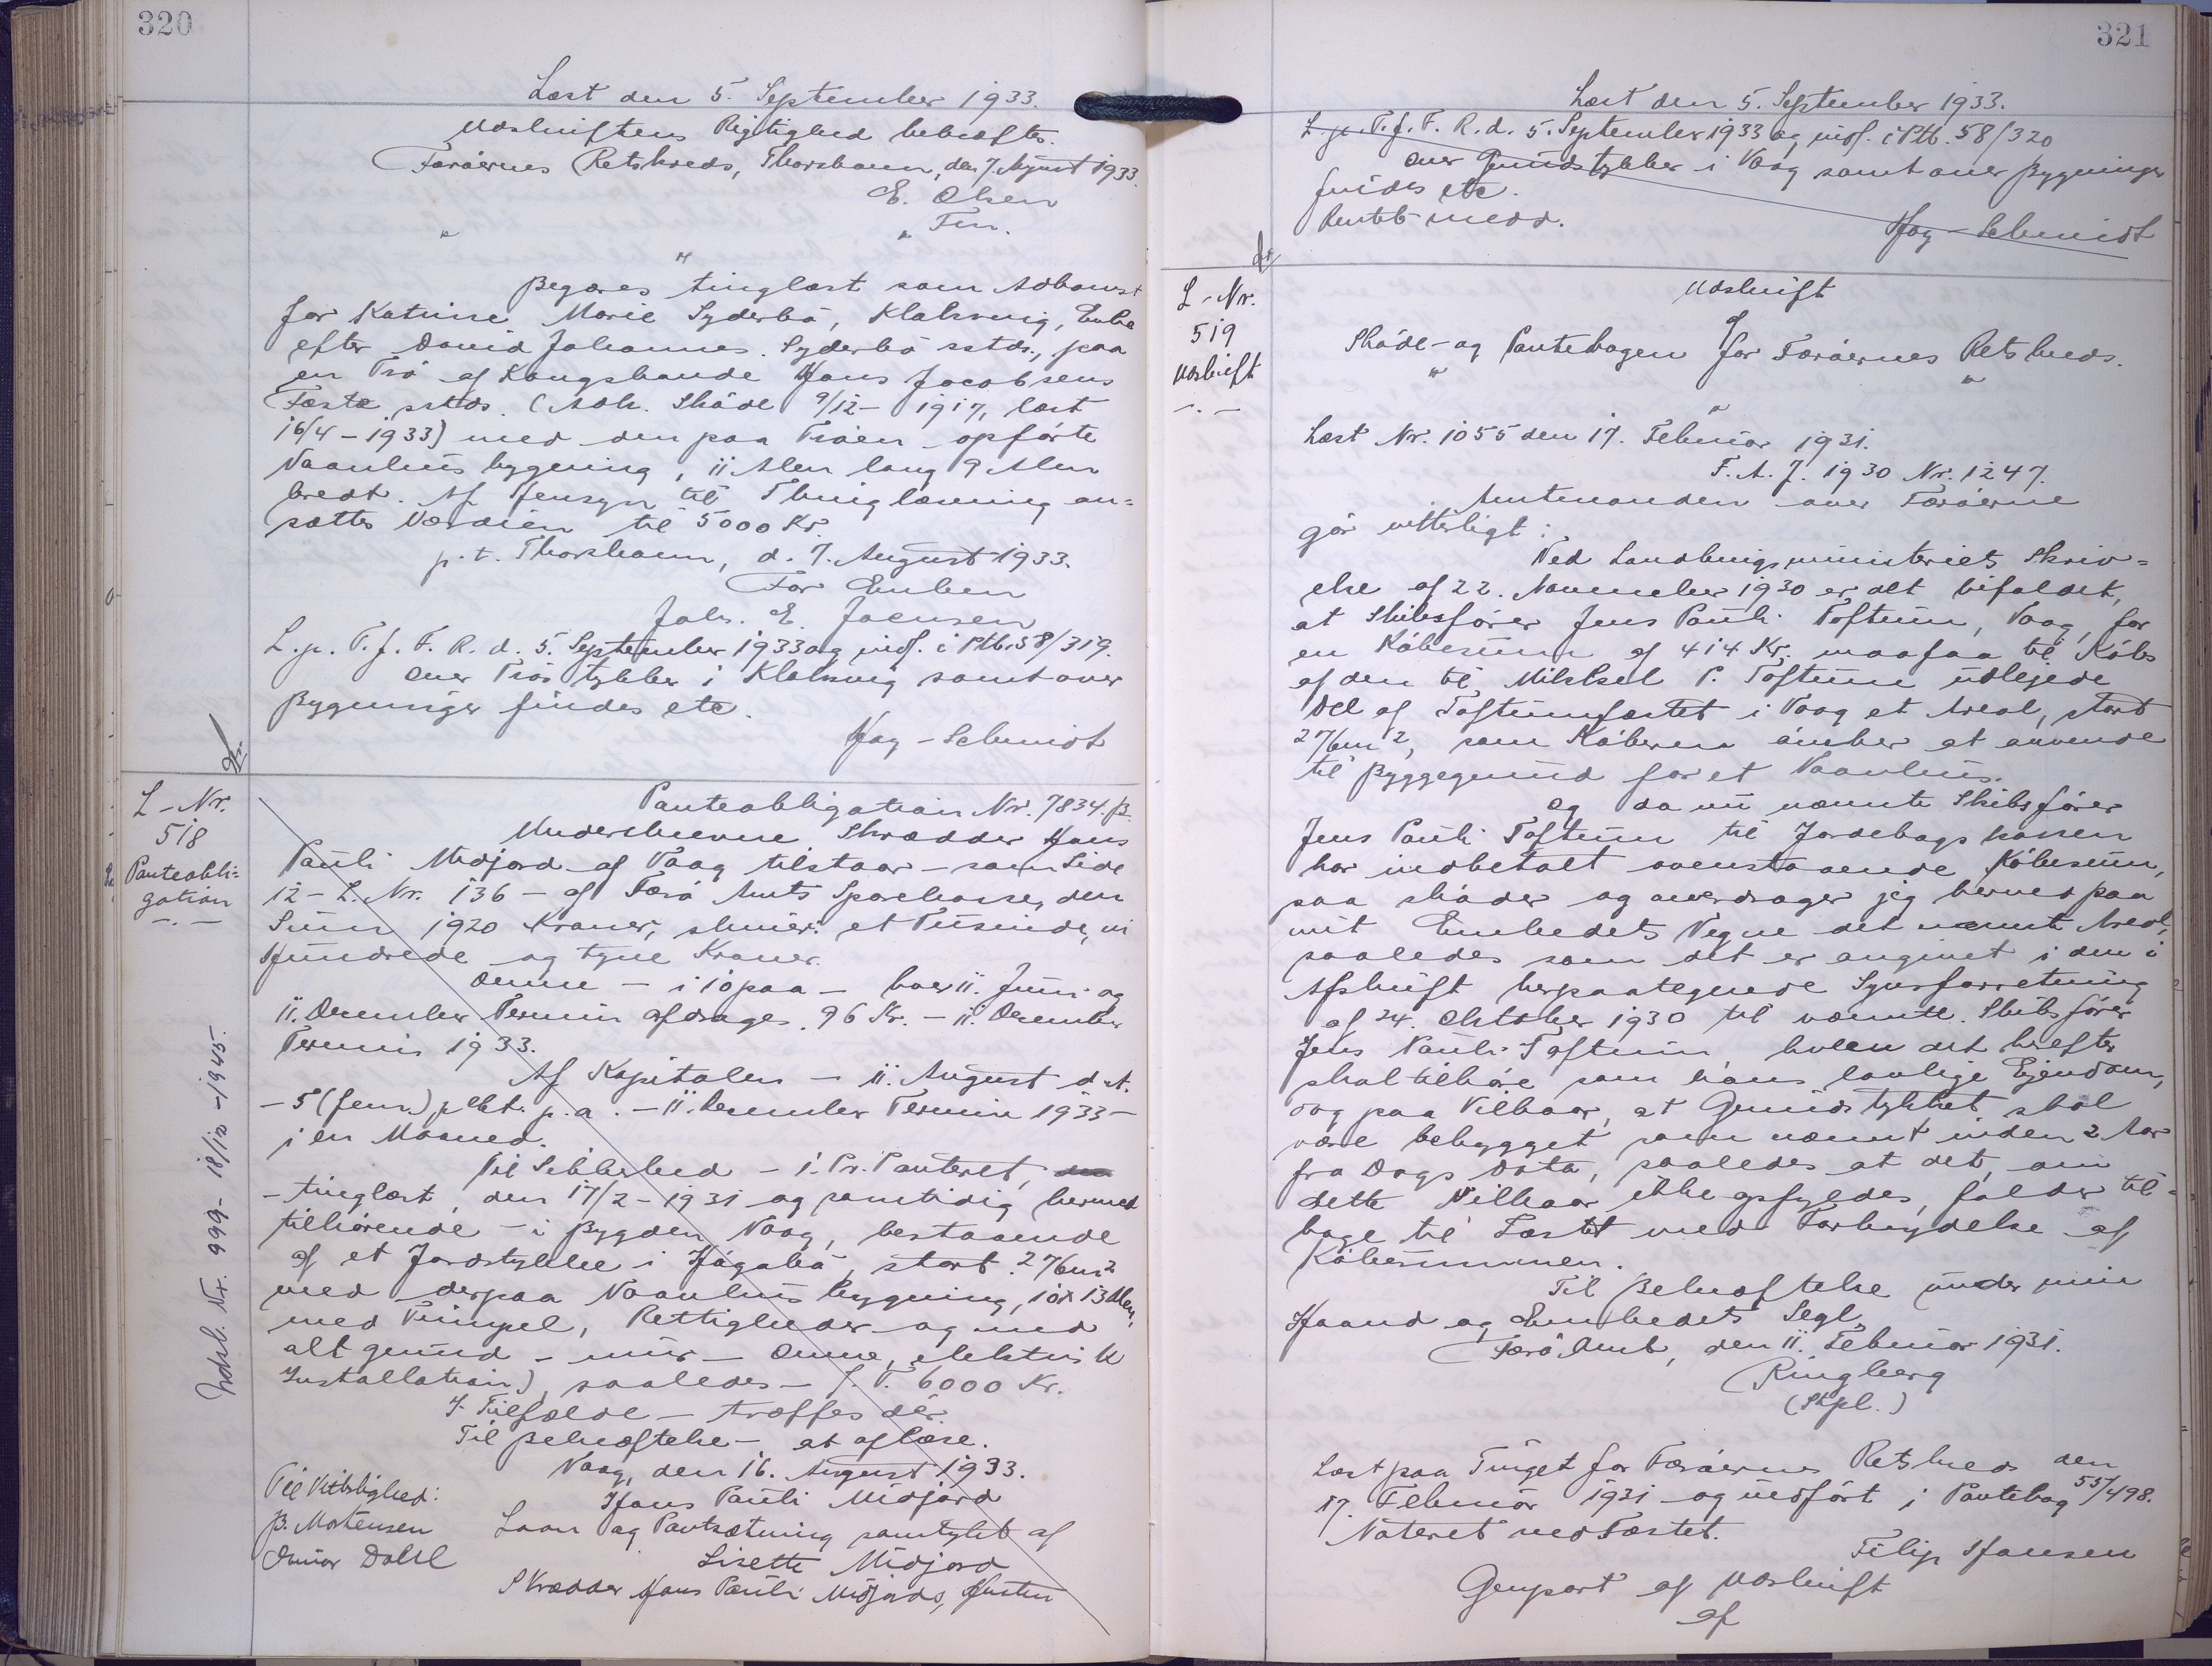 320
Læst den 5. September 1933.
Udskriftens Rigtighed bekræftes.
Færøernes Retskreds, Thorshavn, den 7. August 1933.
E. Olsen
Fm.
Begæres tinglæst som Adkomst
for Katrine Marie Syderbö, Klaksvig, Enke
efter David Johannes Syderbö sstds., paa
en Trö af Kongsbonde Hans Jacobsens
Fæste sstds. (Adk. Sköde 9/12 - 1917, læst
16/4 - 1933) med den paa Tröen opförte
Vaanhusbygning, 11 Alen lang 9 Alen
bredt. Af Hensyn til Thinglæsning an-
sættes Værdien til 5000 Kr.
p.t. Thorshavn, d. 7. August 1933.
For Enken
Johs. E. Joensen
L.p.T.f.F.R.d. 5. September 1933 og indf. i Ptb. 58/319.
Over Tröstykker i Klaksvig samt over
Bygninger findes etc.
Hag-Schmidt
L-Nr.
518
Panteobli-
gation
-.-
Indsl. Nr. 999 - 18/12 - 1945.
Panteobligation Nr. 7834.B.
Underskrevne Skrædder Hans
Pauli Midjord af Vaag tilstaar - som Side
12 - L.Nr. 136 - af Færö Amts Sparekasse, den
Sum 1920 Kroner, skriver et Tusinde, ni
Hundrede og tyve Kroner.
Denne - i 10 paa - hver 11. Juni og
11. December Termin afdrages 96 Kr. - 11. December
Termin 1933.
Af Kapitalen - 11. August d.A.
- 5 (fem) pCt. p.a. - 11. December Termin 1933 -
i en Maaned.
Til Sikkerhed - 1. Pr. Panteret,
- tinglæst den 17/2 - 1931 og samtidig hermed
tilhörende - i Bygden Vaag, bestaaende
af et Jordstykke i Hágabö, stort 276 m²
med derpaa Vaanhusbygning, 10 x 13 Alen,
med Tinyel, Rettigheder og med
alt grund - mur - Ovne, elektrisk
Installation), saaledes - f.T. 6000 Kr.
I Tilfælde - træffes dér.
Til Bekræftelse - at aflæse.
Vaag, den 16. August 1933.
Hans Pauli Midjord
Laan og Pantsætning samtykt af
Lisette Midjord
Skrædder Hans Pauli Midjords, Hustru
Til Vitterlighed:
B. Mortensen
Dahl
321
Læst den 5. September 1933.
L.p.T.f.F.R.d. 5. September 1933 og indf. i Ptb. 58/320
Over Grundstykker i Vaag samt over Bygninger
findes etc.
Amtet medd.
Hag-Schmidt
L-Nr.
519
Udskrift
-.-
Udskrift
af
Sköde- og Pantebogen for Færöernes Retskreds.
Læst Nr. 1055 den 17. Februar 1931.
F.A.J. 1930 Nr. 1247.
Amtmanden over Færöerne
gör vitterligt:
Ved Landbrugsministeriets Skriv-
else af 22. November 1930 er det bifaldet,
at Skibsförer Jens Pauli Toftum, Vaag, for
en Köbesum af 414 Kr. maa faa til Köbs
af den til Mikkel P. Toftum udlejede
Del af Toftumfæstet i Vaag et Areal, stort
276 m², som Köberen önsker at anvende
til Byggegrund for et Vaanhus.
Og da nu nævnte Skibsförer
Jens Pauli Toftum til Jordebogskassen
har indbetalt ovenstaaende Köbesum,
saa sköder og overdrager jeg herved paa
mit Embedets Vegne det nævnte Areal,
saaledes som det er angivet i den i
Afskrift herpaategnede Synsforretning
af 24. Oktober 1930 til nævnte Skibsförer
Jens Pauli Toftum, hvem det herefter
skal tilhöre som hans lovlige Ejendom,
dog paa Vilkaar, at Grundstykket skal
være bebygget som nævnt inden 2 Aar
fra Dags Dato, saaledes at det, om
dette Vilkaar ikke opfyldes, falder til-
bage til Fæstet med Forbrydelse af
Köbesummen.
Til Bekræftelse under min
Haand og Embedets Segl,
Færö Amt, den 11. Februar 1931.
Ringberg
(Stpl.)
Læst paa Tinget for Færöernes Retskreds den
17. Februar 1931 og indfört i Pantebog 55/498.
Noteret ved Fæstet.
Filip Hansen
Genpart af Udskrift
af